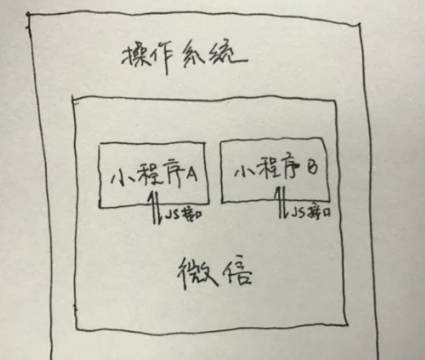 操作系统
小程序A 小程序B
JS接口 JS接口
微信